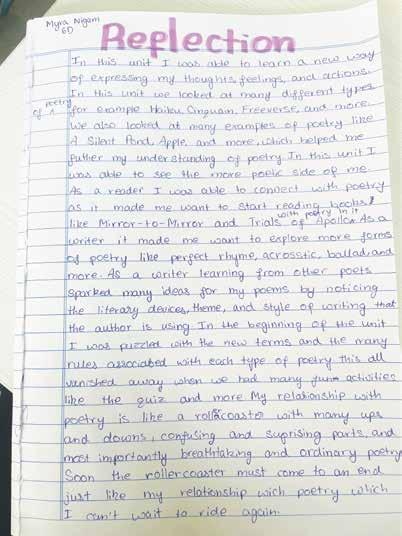 Myra Nigam
6D
Reflection
In this unit I was able to learn a new way
of expressing my thoughts, feelings, and actions.
In this unit we looked at many different types
of poetry for example Haiku, Cinquain, Freeverse, and more.
We also looked at many examples of poetry like
A Silent Pond, Apple, and more, which helped me
futher my understanding of poetry. In this unit I
was able to see the more poetic side of me.
As a reader I was able to connect with poetry
as it made me want to start reading books
like Mirror-to-Mirror and Trials of Apollo with poetry in it. As a
writer it made me want to explore more forms
of poetry like perfect rhyme, acrosstic, ballad, and
more. As a writer learning from other poets
sparked many ideas for my poems by noticing
the literary devices, theme, and style of writing that
the author is using. In the beginning of the unit
I was puzzled with the new terms and the many
rules associated with each type of poetry this all
vanished away when we had many fun activities
like the quiz and more. My relationship with
poetry is like a rollcoaster with many ups
and downs, confusing and suprising parts, and
most importantly breathtaking and ordinary poetry
Soon the rollercoaster must come to an end
just like my relationship wich poetry which
I can't wait to ride again.